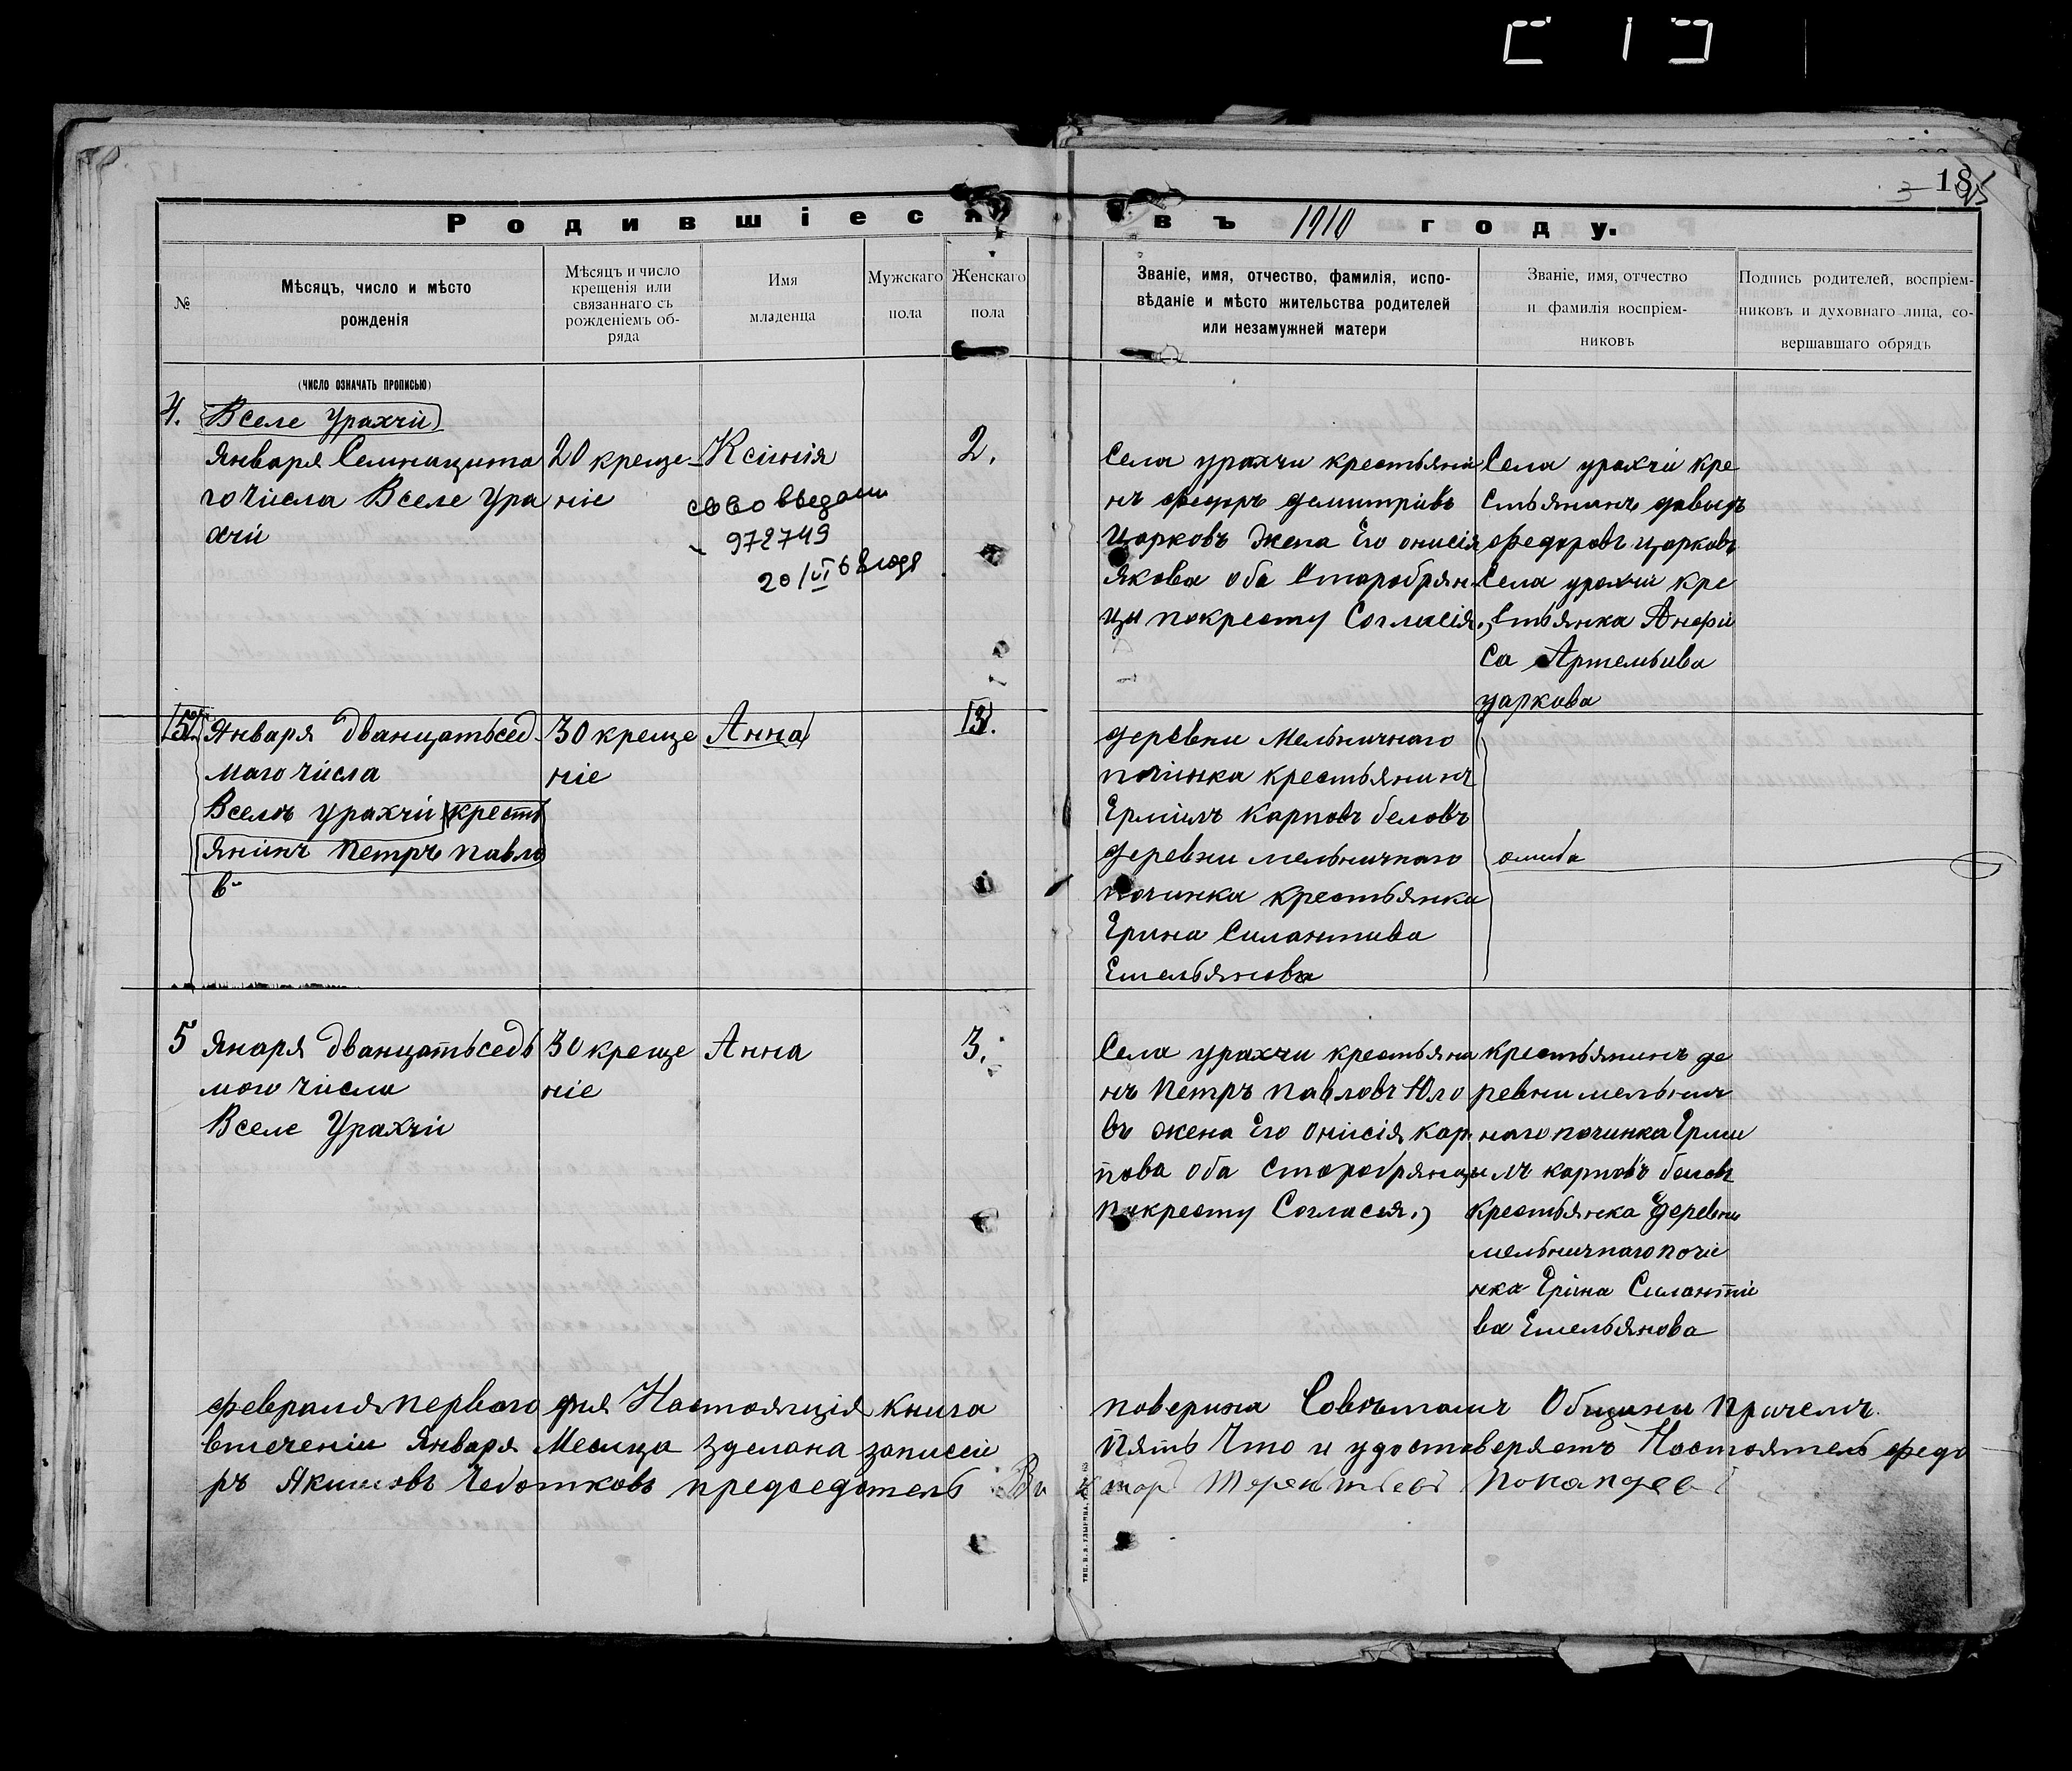 18
Родившіеся въ 1910 году.
№
Мѣсяцъ, число и мѣсто
рожденія
Мѣсяцъ и число
крещенія или
связаннаго съ
рожденіемъ об-
ряда
Имя
младенца
Мужскаго
пола
Женскаго
пола
Званіе, имя, отчество, фамилія, испо-
вѣданіе и мѣсто жительства родителей
или незамужней матери
Званіе, имя, отчество
и фамилія воспріем-
никовъ
Подпись родителей, воспріем-
никовъ и духовнаго лица, со-
вершавшаго обрядъ
(число означать прописью)
4.
Вселе Урахчи
Января Семнацата
го числа Вселе Ура
хчи
20 креще-
ніе
Ксинія
972749
2.
Села урахчи крестьяни
нъ федоръ демитривъ
Царковъ жена Его онисія
Якова оба Старобрян
цы покресту Согласія.
Села урахчи кре
стьянинъ давыдъ
федоровъ царковъ
Села урахчи кре
стьянка Анфи
са Артемьива
царкова
5
Января дванцатьсед
маго числа
Вселъ урахчи кресть
янинъ петръ павло
в
30 креще
ніе
Анна
3.
деревни Мельничнаго
починка крестьянинъ
Ермилъ Карповъ беловъ
деревни мельничнаго
починка крестьянка
Ерина Силантива
Емельянова
ошиба
5
Янаря дванцатьседь
мого числа
Вселе Урахчи
30 креще
ніе
Анна
3.
Села урахчи крестьяни
нъ Петръ павловъ Юло
въ жена Его онисія кар
пова оба старобрянцы
покресту Согласія.
крестьянинъ де
ревни мельнич
наго починка Ерми
лъ карповъ беловъ
крестьянка деревни
мельничнаго почи
нка Ерина Силантии
ва Емельянова
февраля первого дня Настоящія книга поверина Советамъ Общины причемъ
втечении Января Месяца зделана записей Пять Что и удостоверяетъ Настоятель федо
ръ Якимовъ Чеботковъ председатель